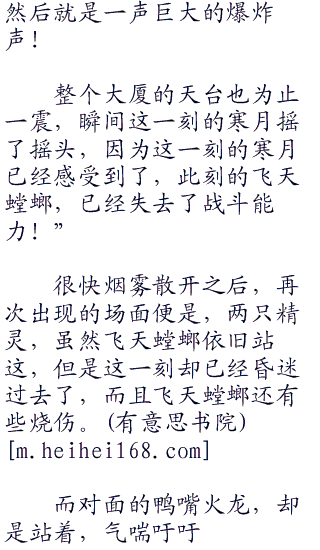 然后就是一声巨大的爆炸
声！
整个大厦的天台也为止
一震，瞬间这一刻的寒月摇
了摇头，因为这一刻的寒月
已经感受到了，此刻的飞天
螳螂，已经失去了战斗能
力！”
很快烟雾散开之后，再
次出现的场面便是，两只精
灵，虽然飞天螳螂依旧站
这，但是这一刻却已经昏迷
过去了，而且飞天螳螂还有
些烧伤。(有意思书院)
[m.heihei168.com]
而对面的鸭嘴火龙，却
是站着，气喘吁吁